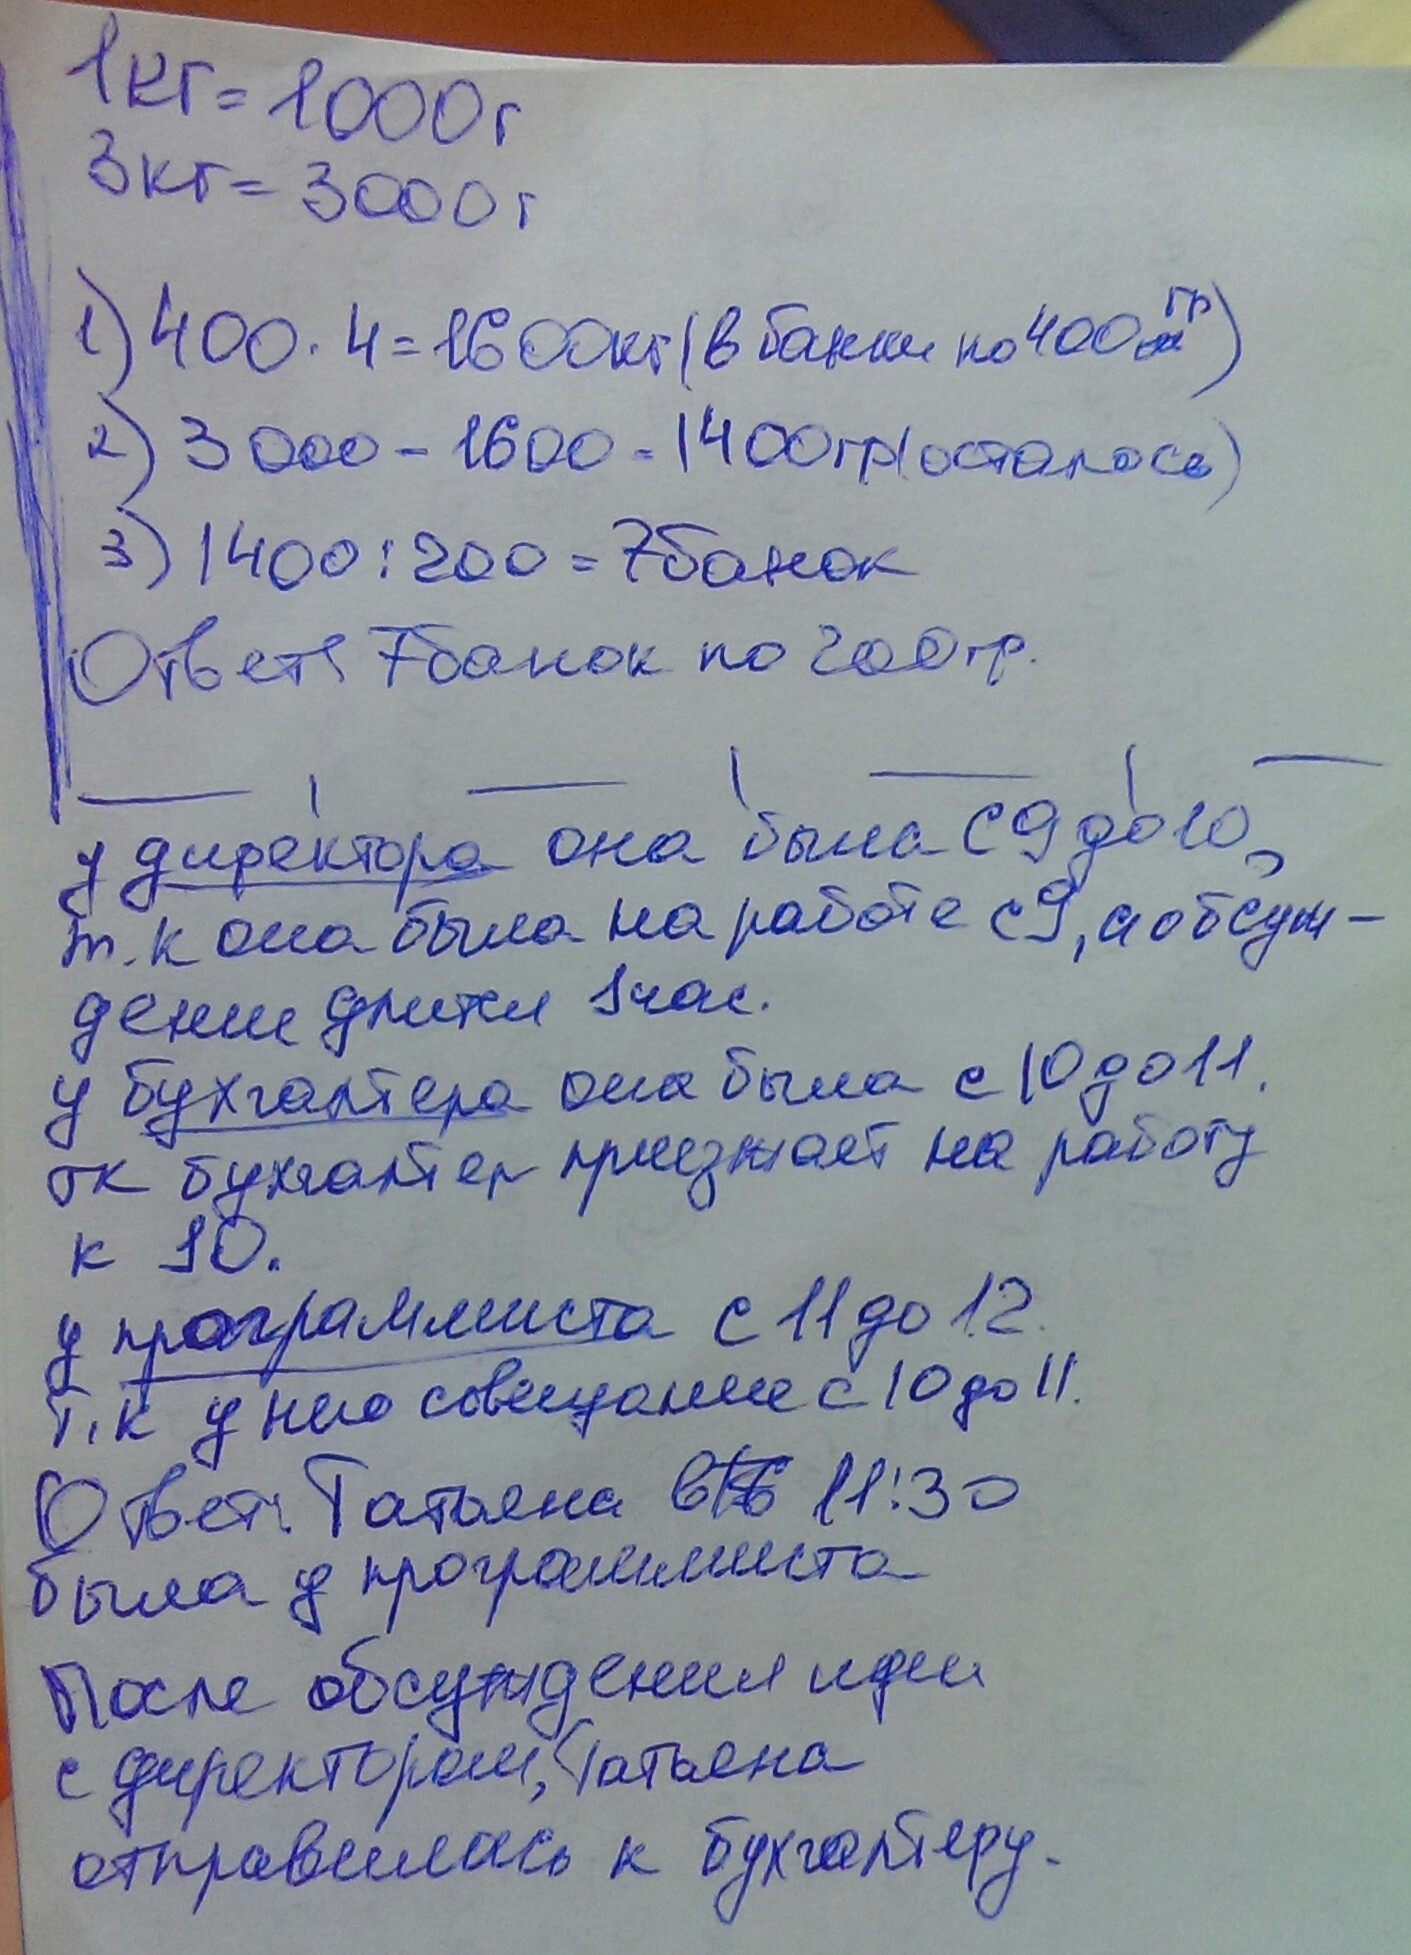 1кг = 1000г
3кг = 3000г
1) 400 · 4 = 1600кг (в банки по 400 гр)
2) 3000 - 1600 - 1400гр (осталось)
3) 1400 : 200 = 7банок
Ответ: 7банок по 200гр.
у директора она была с 9 до 10,
т.к она была на работе с 9, а обсуж-
дении длится 1 час.
у бухгалтера она была с 10 до 11.
тк бухгалтер приезжает на работу
к 10.
у программиста с 11 до 12.
т.к у него совещание с 10 до 11.
Ответ: Татьяна в 11:30
была у программиста
После обсуждения идеи
с директором, Татьяна
отправилась к бухгалтеру.